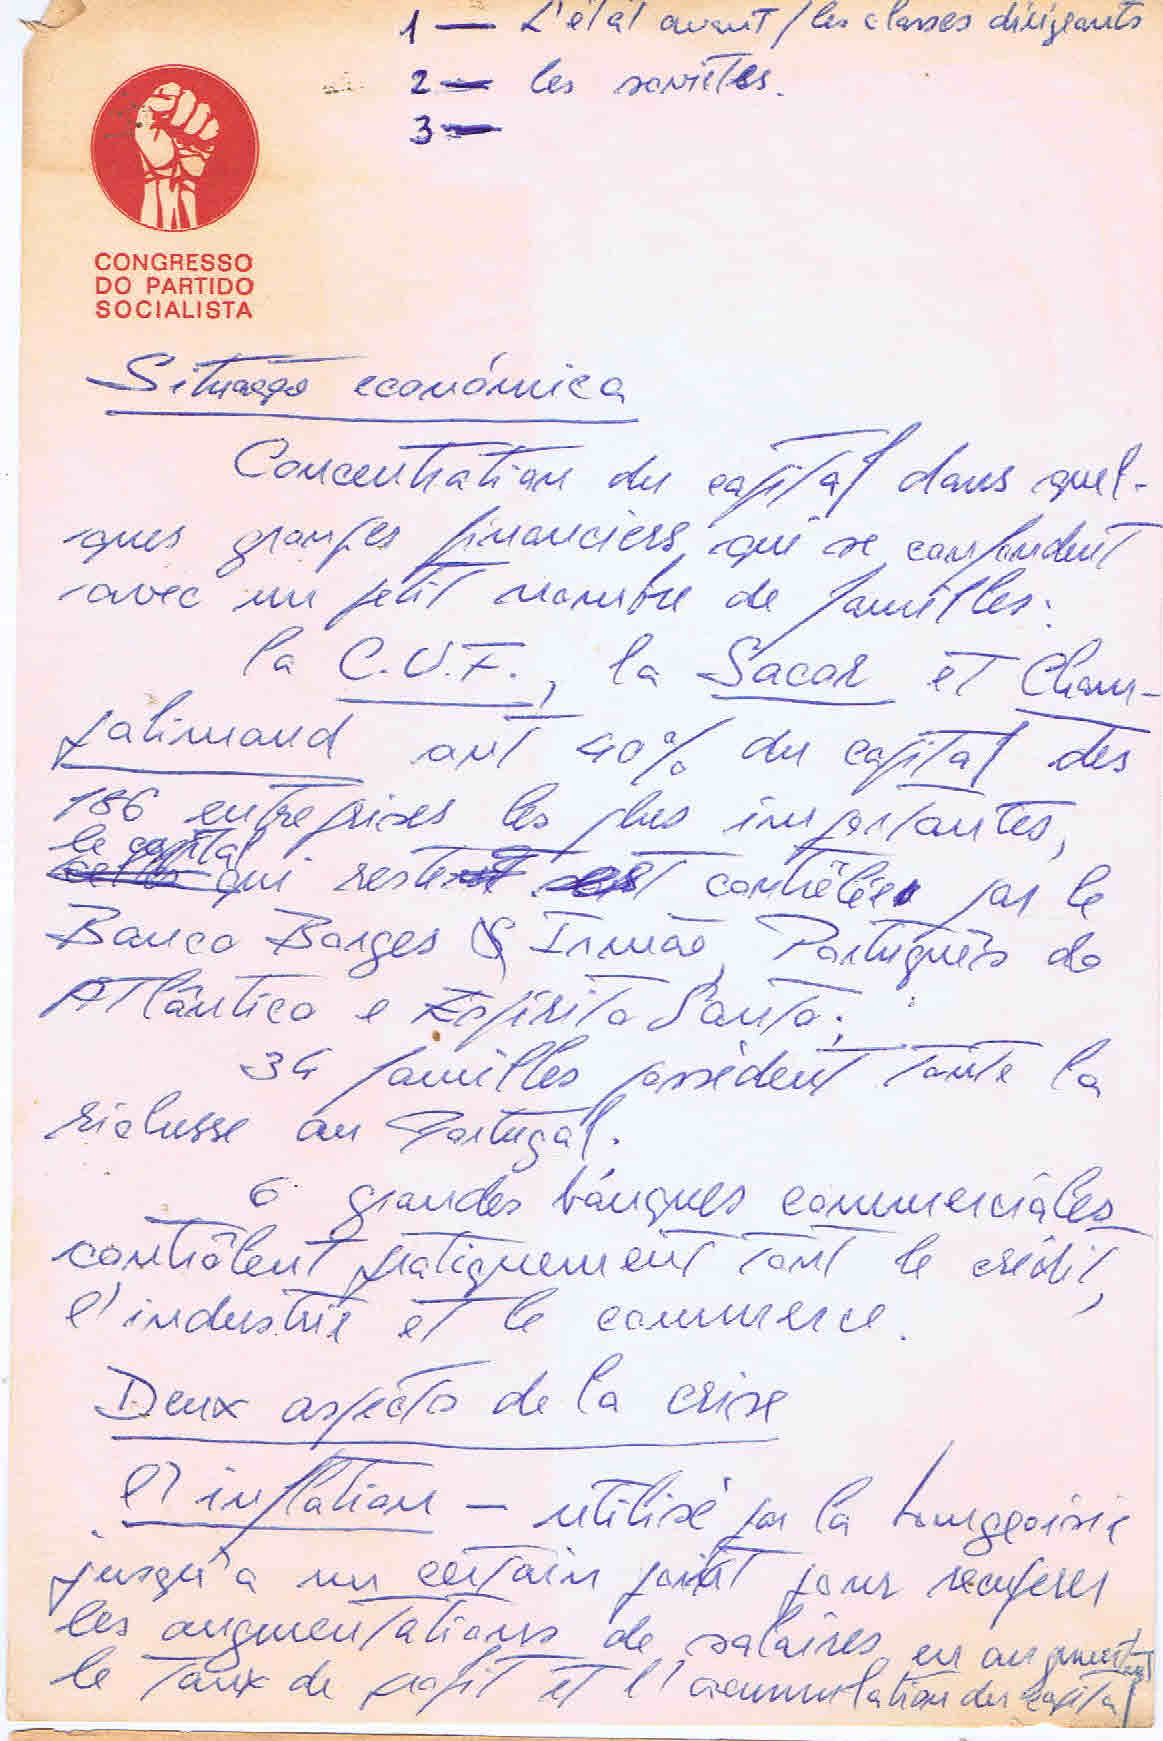 1 — L'état avant / les classes dirigeants
2 — les soviétes.
3 —
CONGRESSO
DO PARTIDO
SOCIALISTA
Situação económica
Concentration du capital dans quel-
ques groupes financiers, qui se confondent
avec un petit nombre de familles:
la C.U.F., la Sacor et Cham-
palimaud ont 40% du capital des
186 entreprises les plus importantes,
le capital
qui reste est contrôlée par le
Banco Borges & Irmão, Português do
Atlântico e Espírito Santo;
34 familles possèdent toute la
richesse au Portugal.
6 grandes banques commerciales
contrôlent pratiquement tout le crédit,
l'industrie et le commerce.
Deux aspects de la crise
l'inflation — utilisé par la bourgeoisie
jusqu'a un certain point pour recuperer
les augmentations de salaires, en augmentant
le taux de profit et l'accumulation du capital